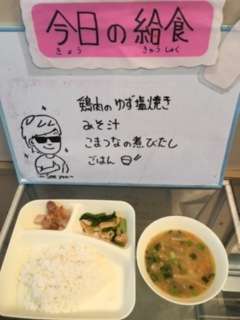 今日の給食
きょう きゅうしょく
鶏肉のゆず塩焼き
みそ汁
こまつなの煮びたし
ごはん